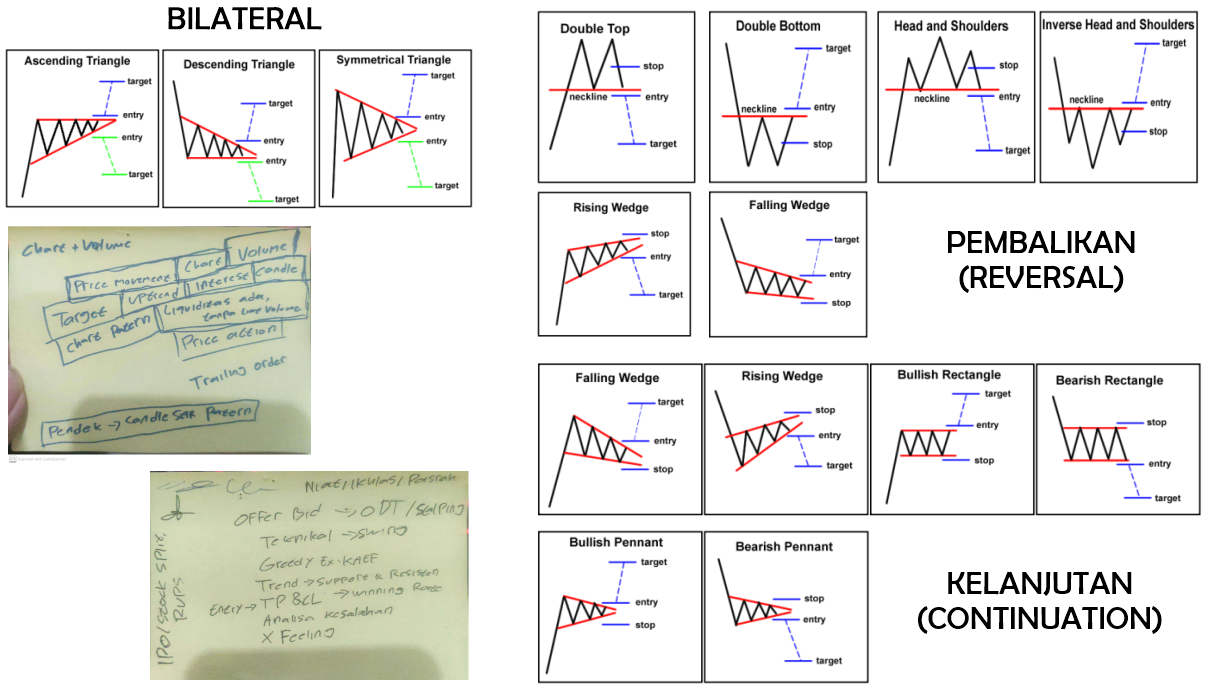 BILATERAL
Ascending Triangle
target
entry
entry
target
Descending Triangle
target
entry
entry
target
Symmetrical Triangle
target
entry
entry
target
Chart + Volume
Price movement
Chart
Volume
Target
Uptrend
Interest
Candle
Chart Pattern
Liquidizas ada,
tanpa Volume
Price action
Trailing order
Pendek ->
Niat/Ikhlas/Pasrah
OFFER Bid -> DT/Scalping
Teknikal -> Swing
Greedy Ex. KAEF
Trend -> Support & Resisten
Entry -> TP & CL -> winning Rate
Analisa Kesalahan
X Feeling
IPO/Stock Split,
RUPS
Double Top
stop
neckline
entry
target
Double Bottom
target
neckline
entry
stop
Head and Shoulders
stop
neckline
entry
target
Inverse Head and Shoulders
target
neckline
entry
stop
Rising Wedge
stop
entry
target
Falling Wedge
target
entry
stop
PEMBALIKAN
(REVERSAL)
Falling Wedge
target
entry
stop
Rising Wedge
stop
entry
target
Bullish Rectangle
target
entry
stop
Bearish Rectangle
stop
entry
target
Bullish Pennant
target
entry
stop
Bearish Pennant
stop
entry
target
KELANJUTAN
(CONTINUATION)